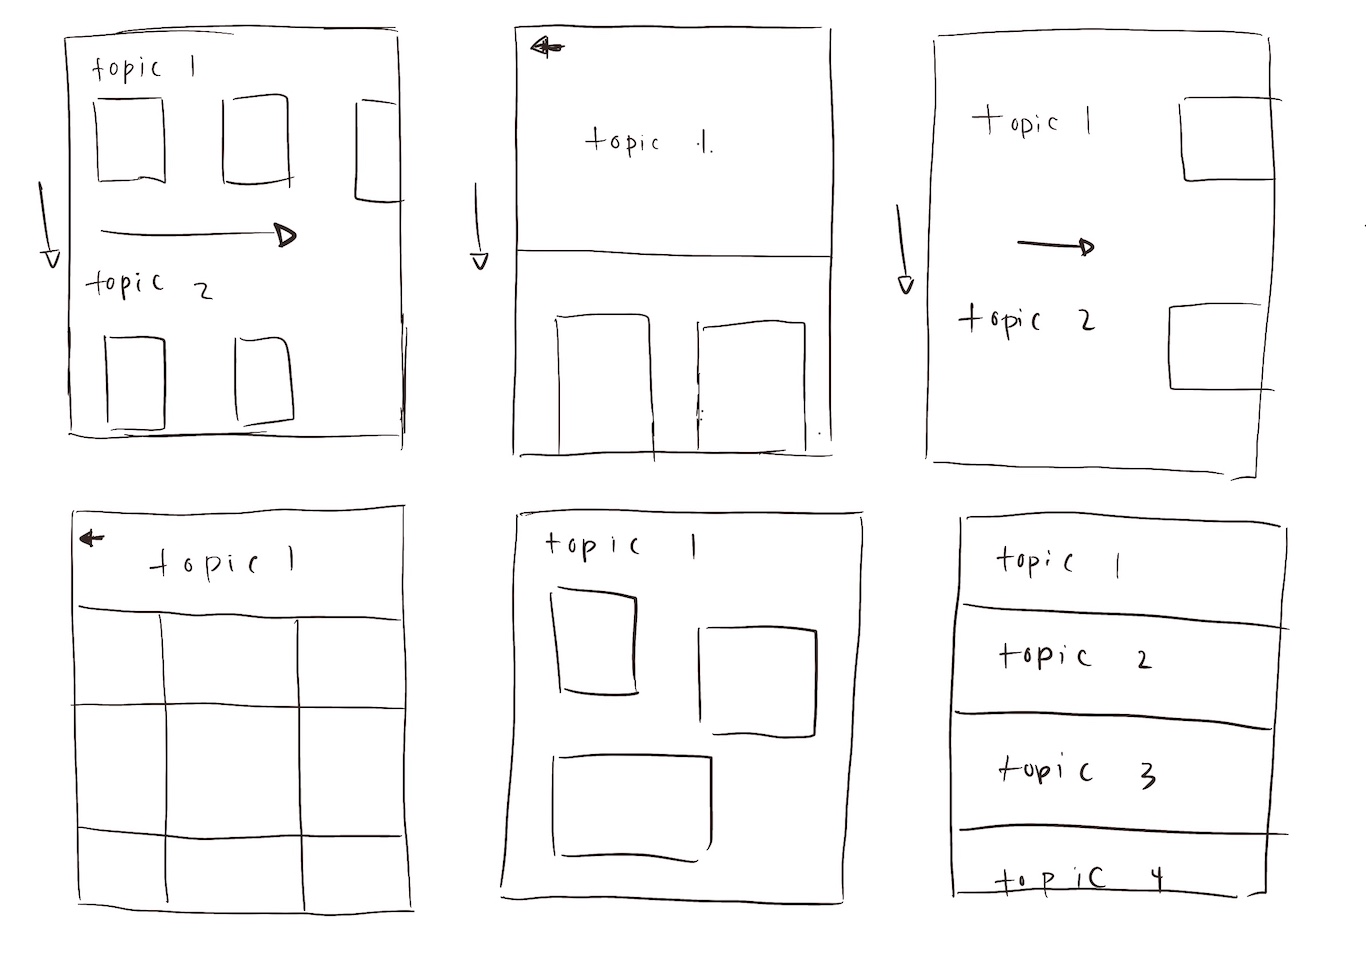 topic 1
topic 2
topic 1.
topic 1
topic 2
topic 1
topic 1
topic 1
topic 2
topic 3
topic 4